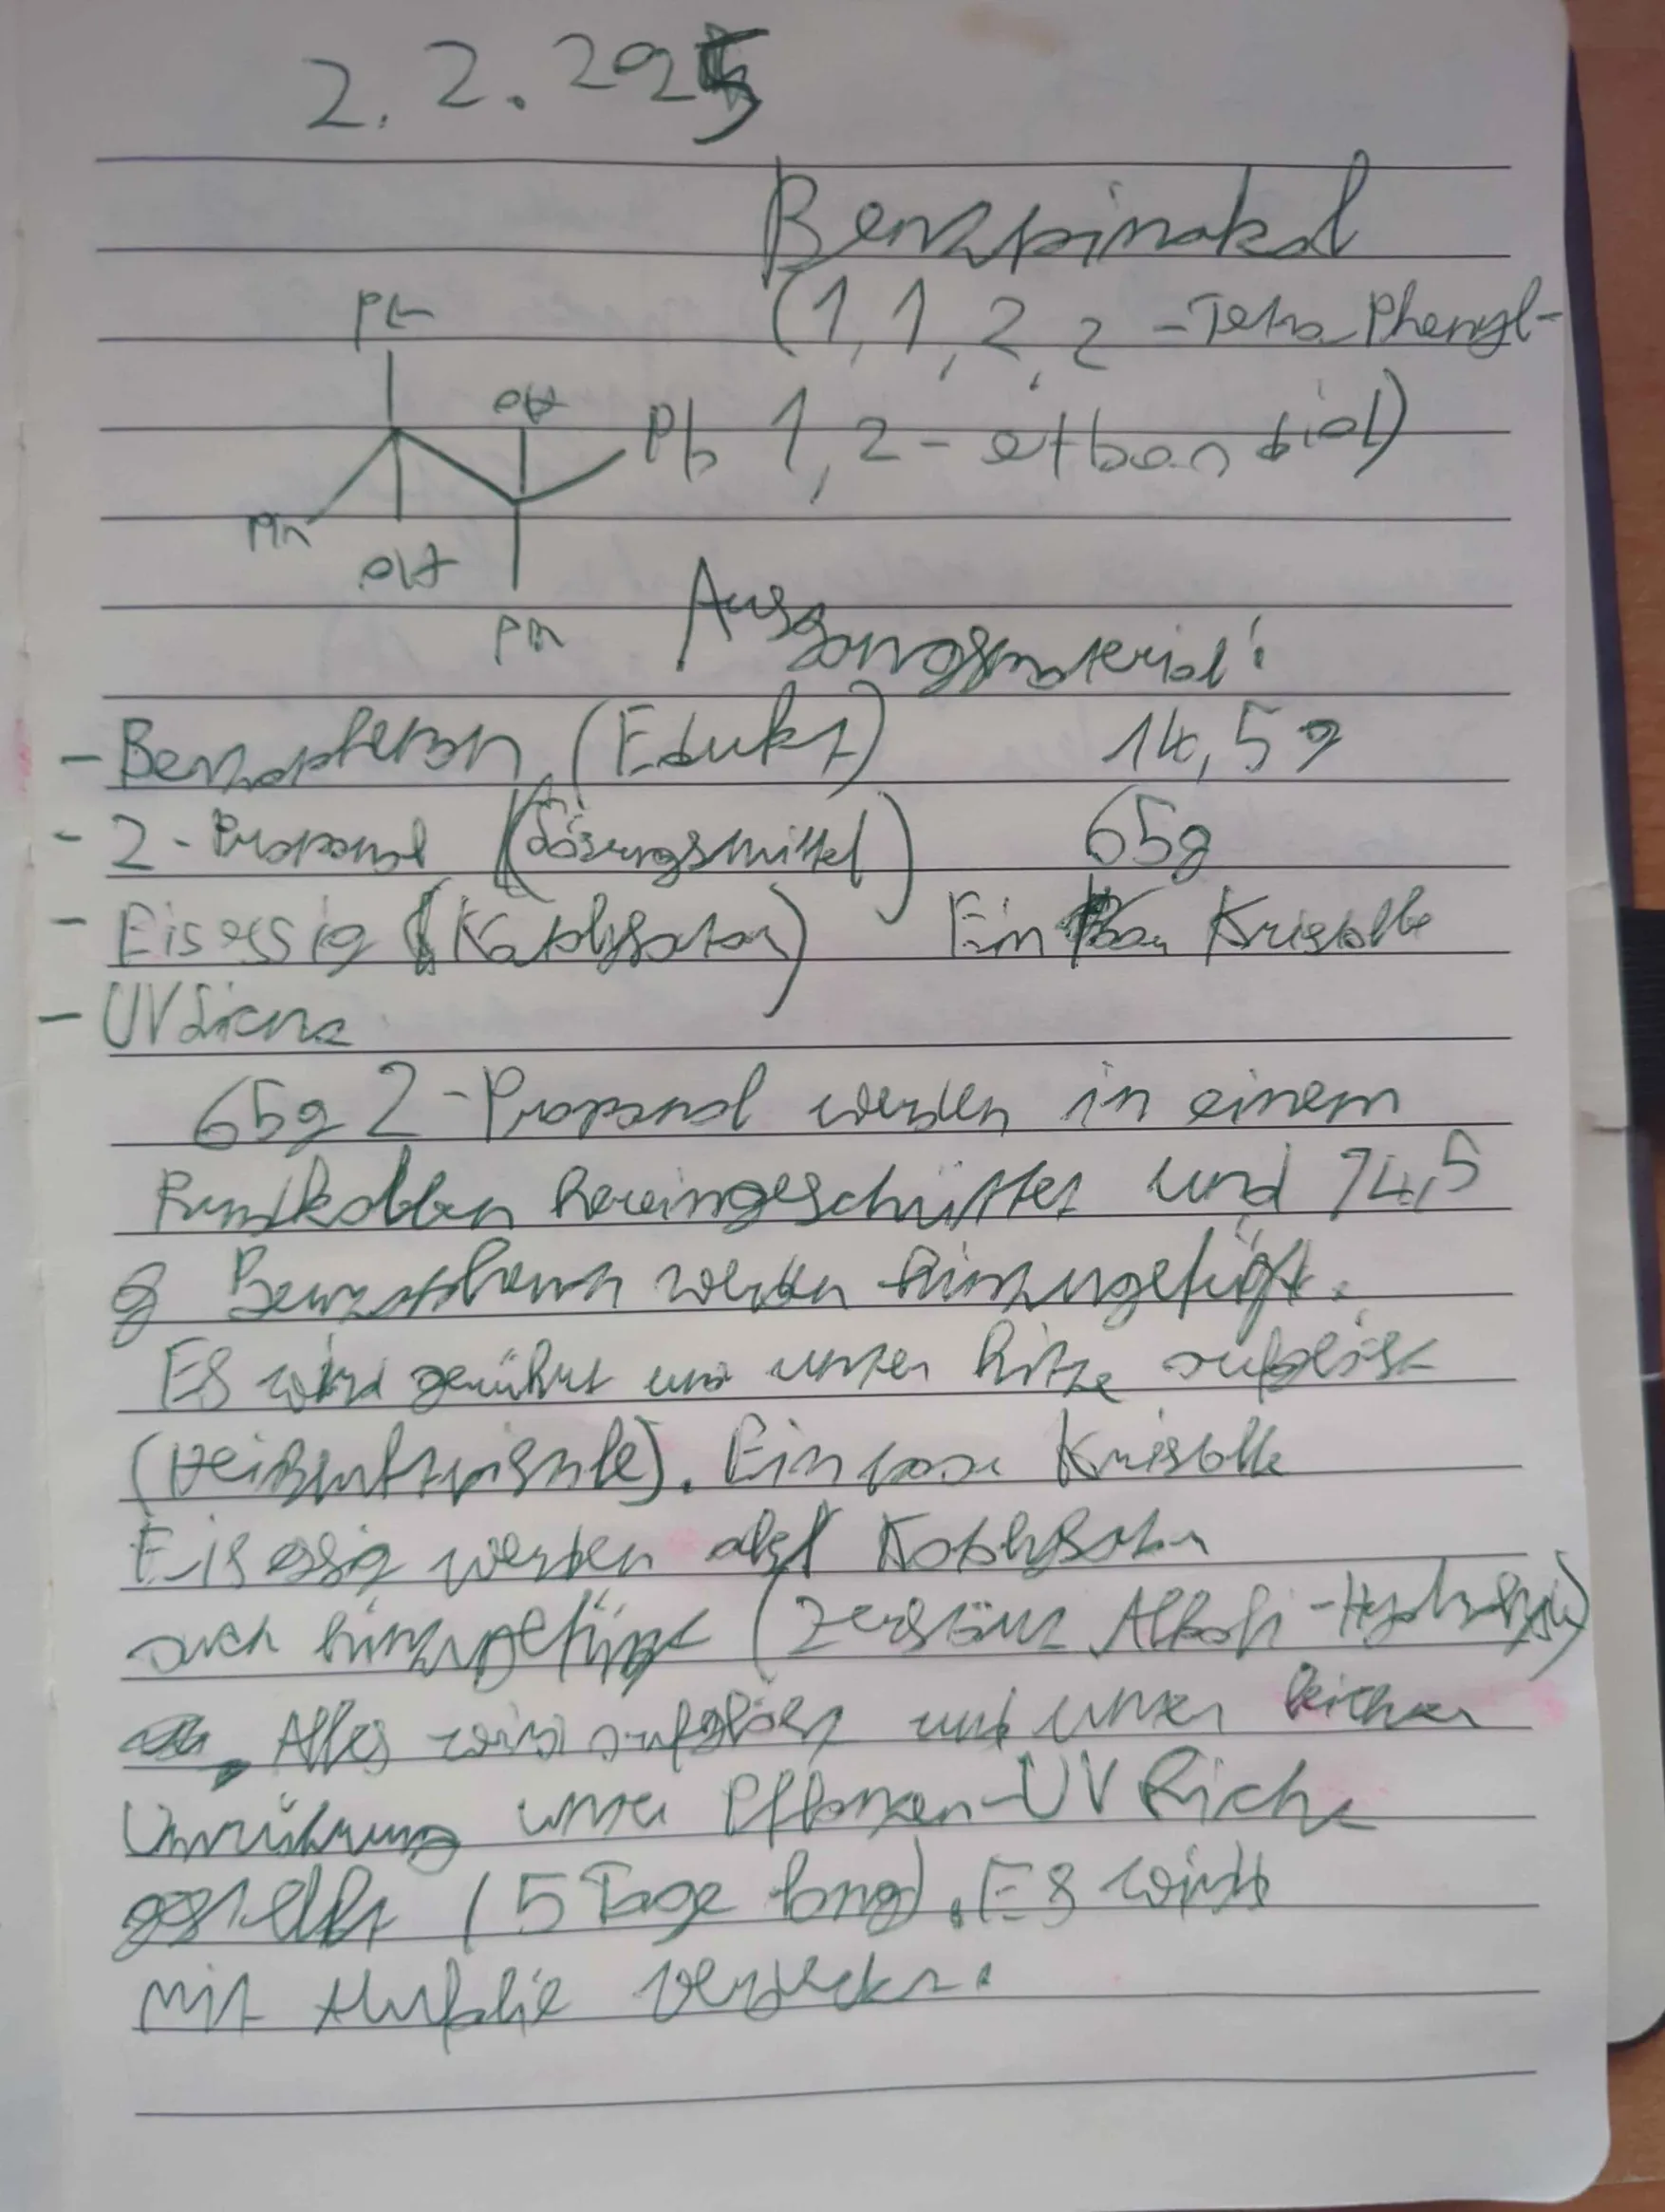 2.2.2025
Benzpinakol
Ph
(1,1,2,2-Tetra Phenyl-
OH
Ph
1,2-ethandiol)
Ph
OH
Ph
Ausgangsmaterial:
- Benzophenon (Edukt) 14,5 g
- 2-Propanol (Lösungsmittel) 65g
- Eisessig (Katalysator) Ein Paar Kristalle
- UV Licht
65g 2-Propanol werden in einem
Rundkolben hereingeschüttet und 14,5
g Benzophenon werden hinzugefügt.
Es wird gerührt und unter hitze aufgelöst
(Heißluftpistole). Ein paar Kristalle
Eisessig werden als Katalysator
auch hinzugefügt (zerstört Alkali-Hydrolyse)
. Alles wird aufgelöst und unter leichter
Umrührung unter Pflanzen-UV Licht
gestellt (5 Tage lang). Es wird
mit Alufolie verdeckt.